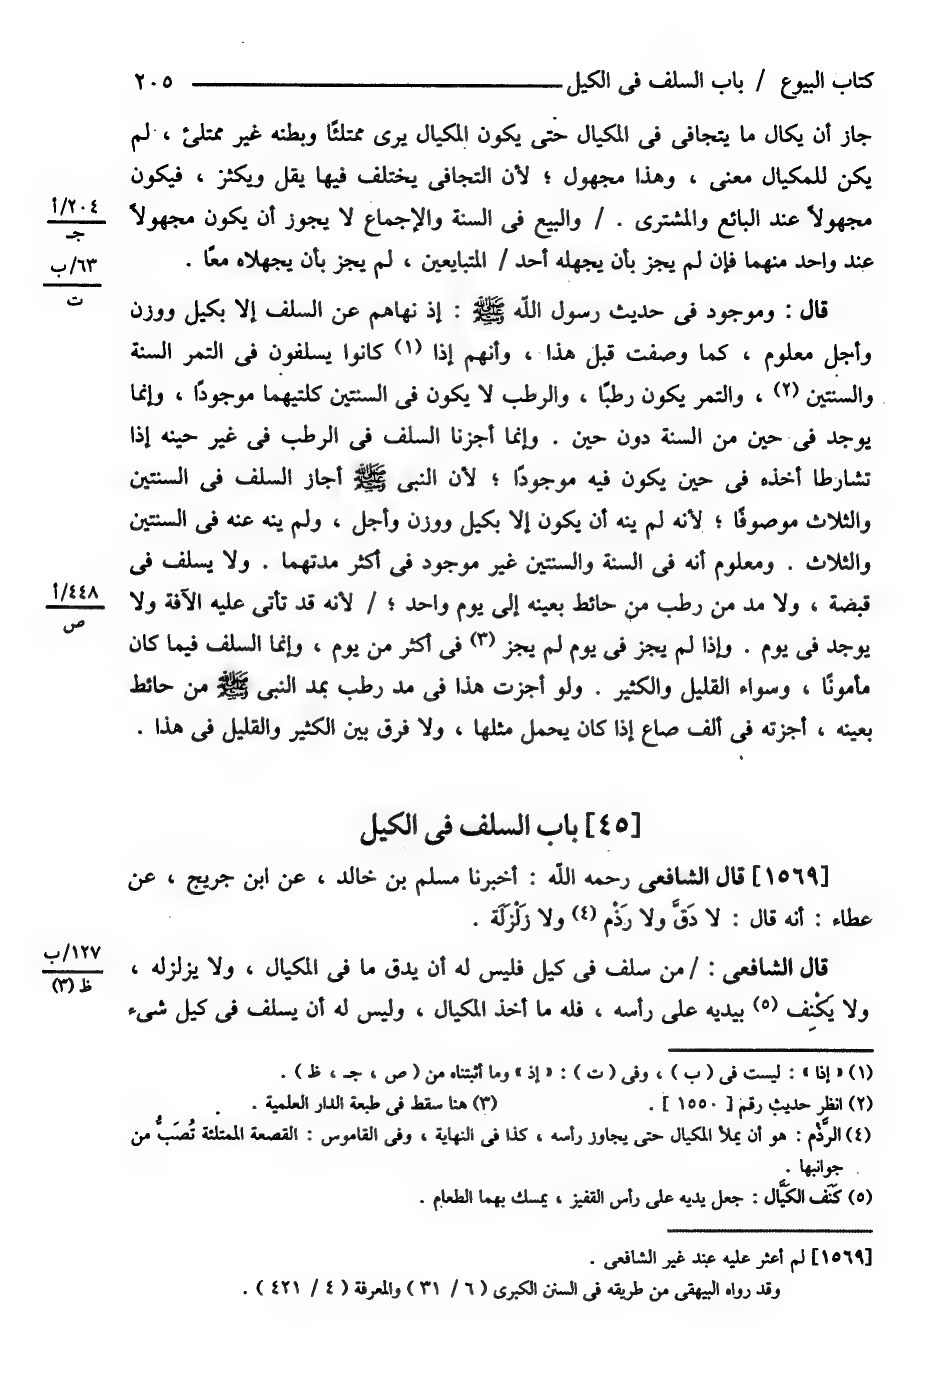 كتاب البيوع / باب السلف فى الكيل ٢٠٥
جاز أن يكال ما يتجافى فى المكيال حتى يكون المكيال يرى ممتلئًا وبطنه غير ممتلئ ، لم
يكن للمكيال معنى ، وهذا مجهول ؛ لأن التجافى يختلف فيها يقل ويكثر ، فيكون
مجهولاً عند البائع والمشترى . / والبيع فى السنة والإجماع لا يجوز أن يكون مجهولاً
٢٠٤/أ
جـ
عند واحد منهما فإن لم يجز بأن يجهله أحد / المتبايعين ، لم يجز بأن يجهلاه معًا .
٦٣/ب
ت
قال : وموجود فى حديث رسول الله ﷺ : إذ نهاهم عن السلف إلا بكيل ووزن
وأجل معلوم ، كما وصفت قبل هذا ، وأنهم إذا (١) كانوا يسلفون فى التمر السنة
والسنتين (٢) ، والتمر يكون رطبًا ، والرطب لا يكون فى السنتين كلتيهما موجودًا ، وإنما
يوجد فى حين من السنة دون حين . وإنما أجزنا السلف فى الرطب فى غير حينه إذا
تشارطا أخذه فى حين يكون فيه موجودًا ؛ لأن النبى ﷺ أجاز السلف فى السنتين
والثلاث موصوفًا ؛ لأنه لم ينه أن يكون إلا بكيل ووزن وأجل ، ولم ينه عنه فى السنتين
والثلاث . ومعلوم أنه فى السنة والسنتين غير موجود فى أكثر مدتهما . ولا يسلف فى
قبضة ، ولا مد من رطب من حائط بعينه إلى يوم واحد ؛ / لأنه قد تأتى عليه الآفة ولا
٤٤٨/أ
ص
يوجد فى يوم . وإذا لم يجز فى يوم لم يجز (٣) فى أكثر من يوم ، وإنما السلف فيما كان
مأمونًا ، وسواء القليل والكثير . ولو أجزت هذا فى مد رطب بمد النبى ﷺ من حائط
بعينه ، أجزته فى ألف صاع إذا كان يحمل مثلها ، ولا فرق بين الكثير والقليل فى هذا .
[٤٥] باب السلف فى الكيل
[١٥٦٩] قال الشافعى رحمه الله : أخبرنا مسلم بن خالد ، عن ابن جريج ، عن
عطاء : أنه قال : لا دَقَّ ولا رَذْم (٤) ولا زَلْزَلَة .
قال الشافعى : / من سلف فى كيل فليس له أن يدق ما فى المكيال ، ولا يزلزله ،
١٢٧/ب
ظ (٣)
ولا يَكْنِف (٥) بيديه على رأسه ، فله ما أخذ المكيال ، وليس له أن يسلف فى كيل شىء
(١) « إذا » : ليست فى ( ب ) ، وفى ( ت ) : « إذ » وما أثبتناه من ( ص ، جـ ، ظ ) .
(٢) انظر حديث رقم [ ١٥٥٠ ] . (٣) هنا سقط فى طبعة الدار العلمية .
(٤) الرَّذْم : هو أن يملأ المكيال حتى يجاوز رأسه ، كذا فى النهاية ، وفى القاموس : القصعة الممتلئة تُصَبُّ من
جوانبها .
(٥) كَنَف الكَيَّال : جعل يديه على رأس القفيز ، يمسك بهما الطعام .
[١٥٦٩] لم أعثر عليه عند غير الشافعى .
وقد رواه البيهقى من طريقه فى السنن الكبرى ( ٦ / ٣١ ) والمعرفة ( ٤ / ٤٢١ ) .